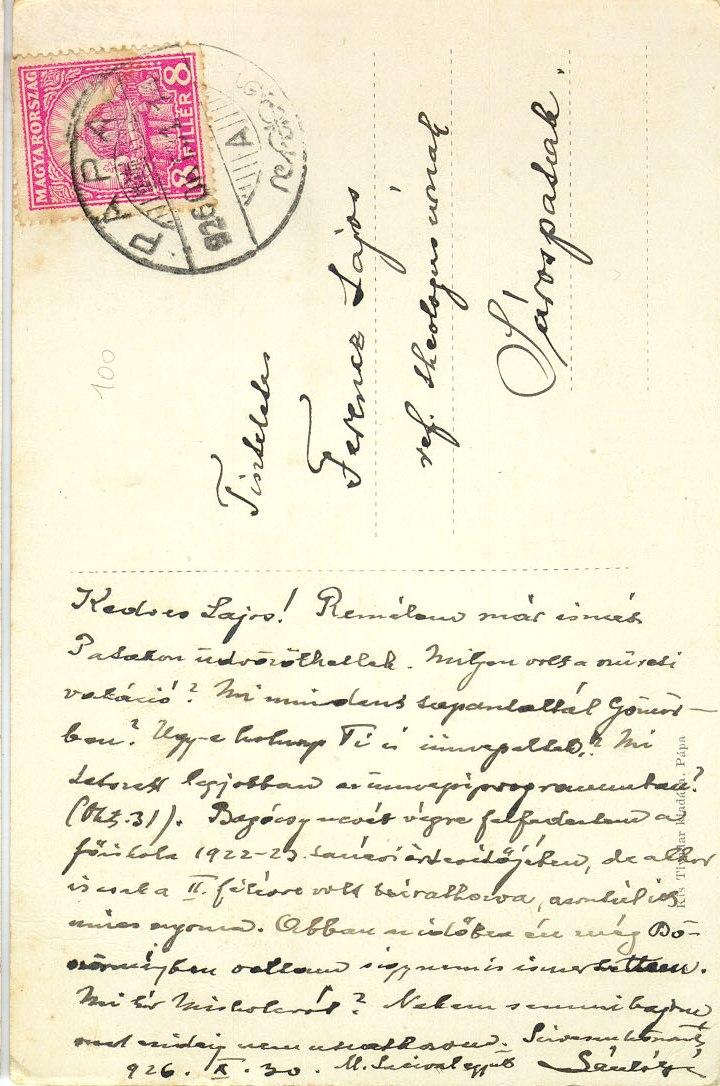 MAGYARORSZÁG
8 FILLÉR 8
PÁPA
926 OK
A
100
Tiszteletes
Ferencz Lajos
ref. theologus úrnak
Sárospatak.
Kedves Lajos! Remélem már ismét
Patakon üdvözölhetlek. Milyen volt a szüreti
vakáció? Mi mindent tapasztaltál Gömör-
ben? Ugy-e holnap Ti is ünnepeltek? Mi
tetszett legjobban az ünnepi programmban?
(Okt. 31). Bagócsy nevét végre felfedeztem a
főiskola 1922-23. tanévi értesítőjében, de akkor
is csak a II. félévre volt beiratkozva, azontúl
nincs nyoma. Abban az időben én még Bö-
szörményben voltam s így nem is ismertem.
Mi hír Miskolcról? Nekem semmi bajom
mert eddig nem unatkozom. Szívesen
926. X. 30. M. együtt
Kis Tivadar kiadása, Pápa